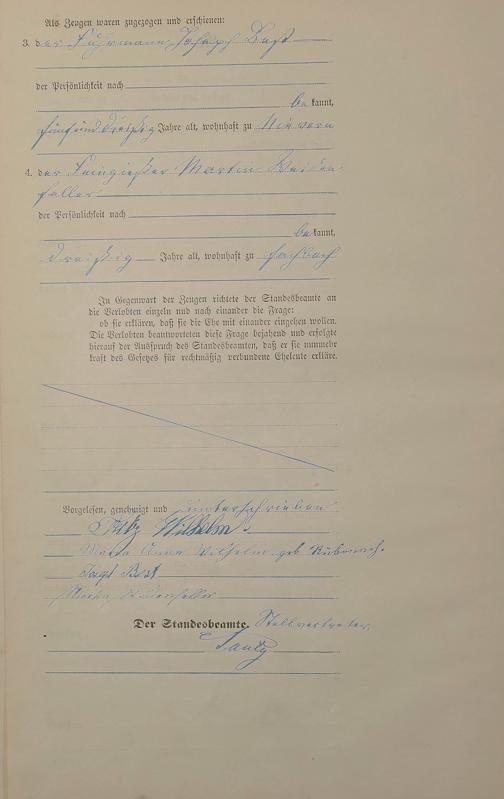 Als Zeugen waren zugezogen und erschienen:
3. der Fuhrmann Joseph Best
der Persönlichkeit nach
bekannt,
fünfunddreißig Jahre alt, wohnhaft zu Nievern
4. der Feingießer Martin Weiden-
faller
der Persönlichkeit nach
bekannt,
dreißig Jahre alt, wohnhaft zu Fachbach
In Gegenwart der Zeugen richtete der Standesbeamte an
die Verlobten einzeln und nach einander die Frage:
ob sie erklären, daß sie die Ehe mit einander eingehen wollen.
Die Verlobten beantworteten diese Frage bejahend und erfolgte
hierauf der Ausspruch des Standesbeamten, daß er sie nunmehr
kraft des Gesetzes für rechtmäßig verbundene Eheleute erkläre.
Vorgelesen, genehmigt und unterschrieben
Fritz Wilhelm.
Maria Anna Wilhelm geb.
Best
Martin Weidenfaller
Der Standesbeamte. Stellvertreter.